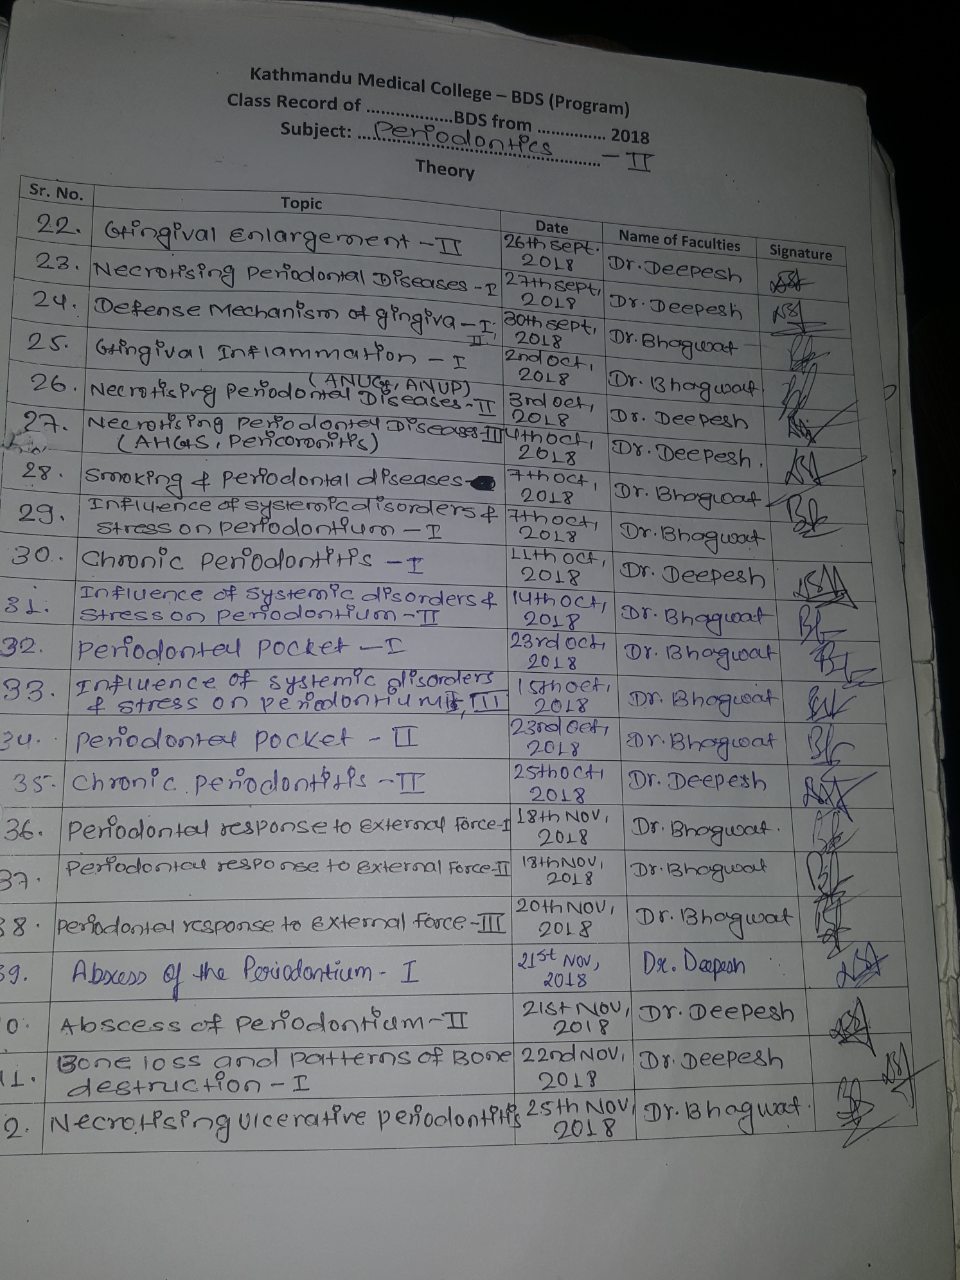 Kathmandu Medical College – BDS (Program)
Class Record of ..................BDS from .............. 2018
Subject: ...Periodontics........... – II
Theory
Sr. No. Topic Date Name of Faculties Signature
22. Gingival Enlargement – II 26th Sept. 2018 Dr. Deepesh
23. Necrotising Periodontal Diseases – I 27th Sept, 2018 Dr. Deepesh
24. Defense Mechanism of gingiva – I, II 30th Sept, 2018 Dr. Bhagwat
25. Gingival Inflammation – I 2nd Oct, 2018 Dr. Bhagwat
26. Necrotising Periodontal Diseases – II (ANUG, ANUP) 3rd Oct, 2018 Dr. Deepesh
27. Necrotising Periodontal Diseases – III (AHGS, Pericoronitis) 4th Oct, 2018 Dr. Deepesh.
28. Smoking & Periodontal diseases 7th Oct, 2018 Dr. Bhagwat
29. Influence of systemic disorders & stress on periodontium – I 7th Oct, 2018 Dr. Bhagwat
30. Chronic Periodontitis – I 11th Oct, 2018 Dr. Deepesh
31. Influence of systemic disorders & stress on periodontium – II 14th Oct, 2018 Dr. Bhagwat
32. Periodontal Pocket – I 23rd Oct, 2018 Dr. Bhagwat
33. Influence of systemic disorders & stress on periodontium III 15th Oct, 2018 Dr. Bhagwat
34. Periodontal Pocket – II 23rd Oct, 2018 Dr. Bhagwat
35. Chronic Periodontitis – II 25th Oct, 2018 Dr. Deepesh
36. Periodontal response to External Force-I 18th Nov, 2018 Dr. Bhagwat.
37. Periodontal response to External Force-II 18th Nov, 2018 Dr. Bhagwat
38. Periodontal response to External force-III 20th Nov, 2018 Dr. Bhagwat
39. Abscess of the Periodontium - I 21st Nov, 2018 Dr. Deepesh
0. Abscess of Periodontium – II 21st Nov, 2018 Dr. Deepesh
1. Bone loss and patterns of Bone destruction – I 22nd Nov, 2018 Dr. Deepesh
2. Necrotising ulcerative periodontitis 25th Nov, 2018 Dr. Bhagwat.